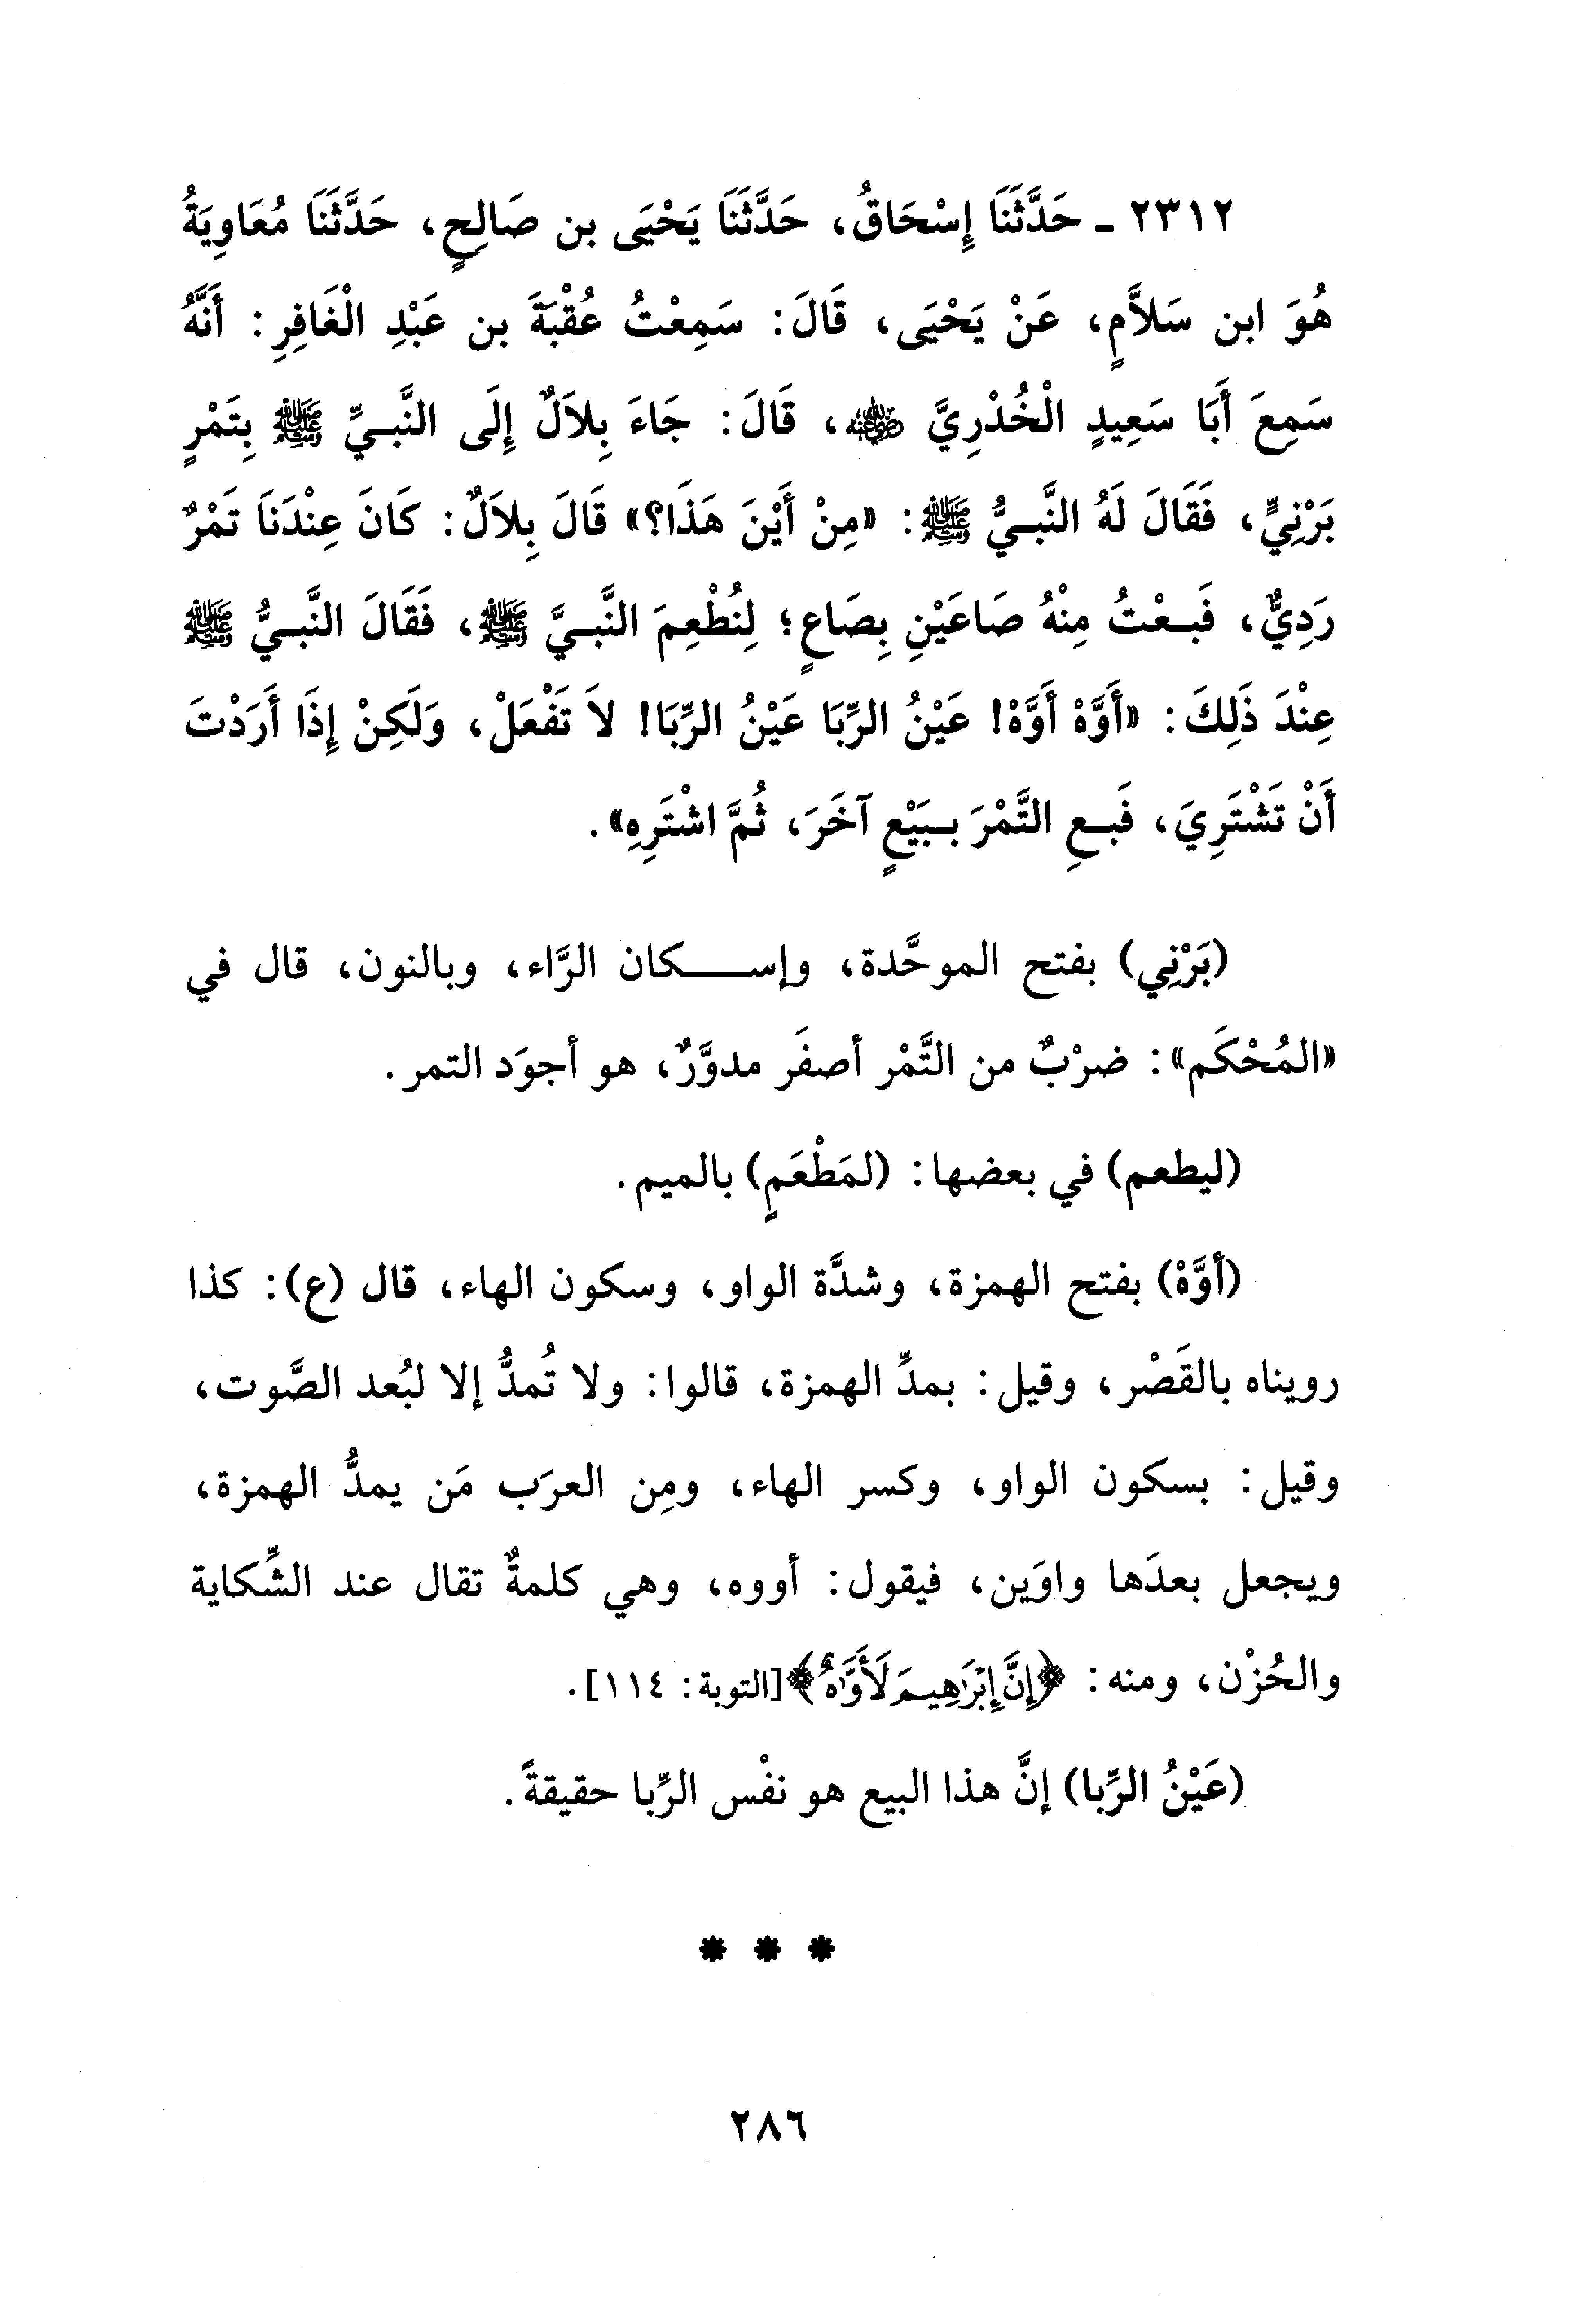 ٢٣١٢ - حَدَّثَنَا إِسْحَاقُ، حَدَّثَنَا يَحْيَى بن صَالِحٍ، حَدَّثَنَا مُعَاوِيَةُ
هُوَ ابن سَلاَّمٍ، عَنْ يَحْيَى، قَالَ: سَمِعْتُ عُقْبَةَ بن عَبْدِ الْغَافِرِ: أَنَّهُ
سَمِعَ أَبَا سَعِيدٍ الْخُدْرِيَّ رضي الله عنه، قَالَ: جَاءَ بِلاَلٌ إِلَى النَّبِيِّ ﷺ بِتَمْرٍ
بَرْنِيٍّ، فَقَالَ لَهُ النَّبِيُّ ﷺ: «مِنْ أَيْنَ هَذَا؟» قَالَ بِلاَلٌ: كَانَ عِنْدَنَا تَمْرٌ
رَدِيٌّ، فَبِعْتُ مِنْهُ صَاعَيْنِ بِصَاعٍ؛ لِنُطْعِمَ النَّبِيَّ ﷺ، فَقَالَ النَّبِيُّ ﷺ
عِنْدَ ذَلِكَ: «أَوَّهْ أَوَّهْ! عَيْنُ الرِّبَا عَيْنُ الرِّبَا! لاَ تَفْعَلْ، وَلَكِنْ إِذَا أَرَدْتَ
أَنْ تَشْتَرِيَ، فَبِعِ التَّمْرَ بِبَيْعٍ آخَرَ، ثُمَّ اشْتَرِهِ».
(بَرْنِي) بفتح الموحَّدة، وإسكان الرَّاء، وبالنون، قال في
«المُحْكَم»: ضرْبٌ من التَّمْر أصفَر مدوَّرٌ، هو أجوَد التمر.
(ليطعم) في بعضها: (لمَطْعَمٍ) بالميم.
(أوَّهْ) بفتح الهمزة، وشدَّة الواو، وسكون الهاء، قال (ع): كذا
رويناه بالقَصْر، وقيل: بمدِّ الهمزة، قالوا: ولا تُمدُّ إلا لبُعد الصَّوت،
وقيل: بسكون الواو، وكسر الهاء، ومِن العرَب مَن يمدُّ الهمزة،
ويجعل بعدَها واوَين، فيقول: أووه، وهي كلمةٌ تقال عند الشِّكاية
والحُزْن، ومنه: ﴿إِنَّ إِبْرَاهِيمَ لَأَوَّاهٌ﴾ [التوبة: ١١٤].
(عَيْنُ الرِّبا) إنَّ هذا البيع هو نفْس الرِّبا حقيقةً.
* * *
٢٨٦